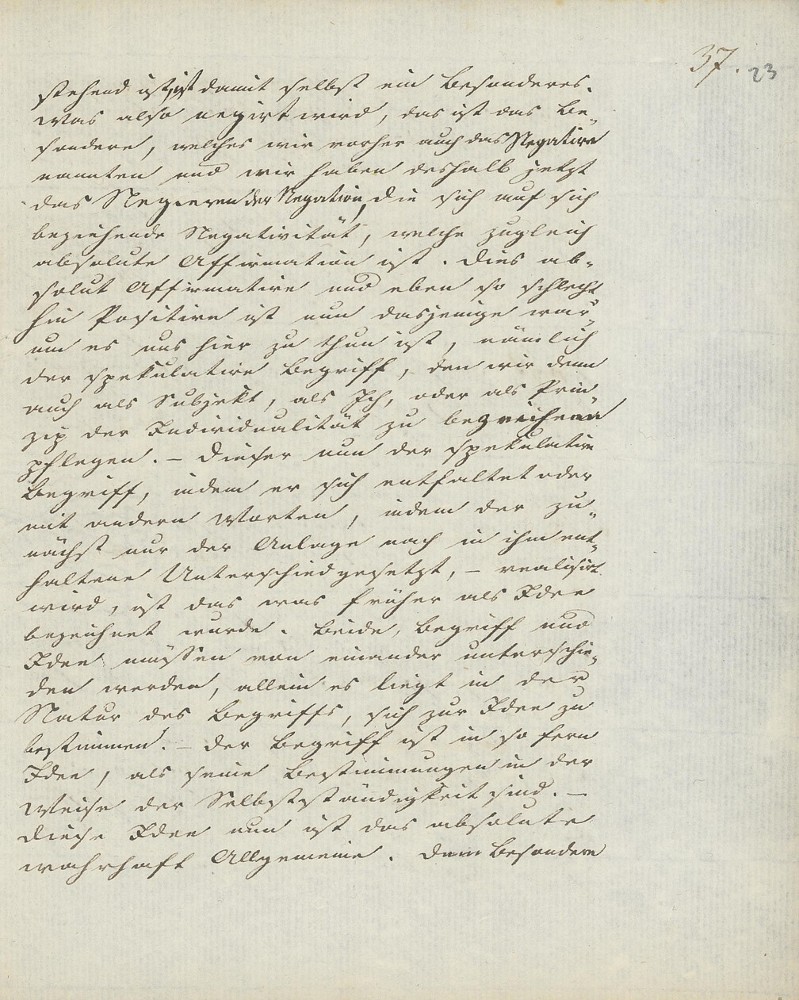 37. 23
stehend ist, ist damit selbst ein Besonderes.
Was also negirt wird, das ist das Be-
sondere, welches wir vorher auch das Negative
nannten und wir haben deshalb jetzt
das Negieren der Negation, die sich auf sich
beziehende Negativität, welche zugleich
absolute Affirmation ist. Dies ab-
solut Affirmative und eben so schlecht
hin Positive ist nun dasjenige war-
um es uns hier zu thun ist, nämlich
der spekulative Begriff, den wir denn
auch als Subjekt, als Ich, oder als Prin-
zip der Individualität zu bezeichnen
pflegen. – Dieser nun der spekulative
Begriff, indem er sich entfaltet oder
mit andern Worten, indem der zu-
nächst nur der Anlage nach in ihm ent-
haltene Unterschied gesetzt, – realisirt
wird, ist das was früher als Idee
bezeichnet wurde. Beide, Begriff und
Idee müssen von einander unterschie-
den werden, allein es liegt in der
Natur des Begriffs, sich zur Idee zu
bestimmen. – Der Begriff ist in so fern
Idee, als seine Bestimmungen in der
Weise der Selbstständigkeit sind. –
Diese Idee nun ist das absolute
wahrhaft Allgemeine. Dem Besondern